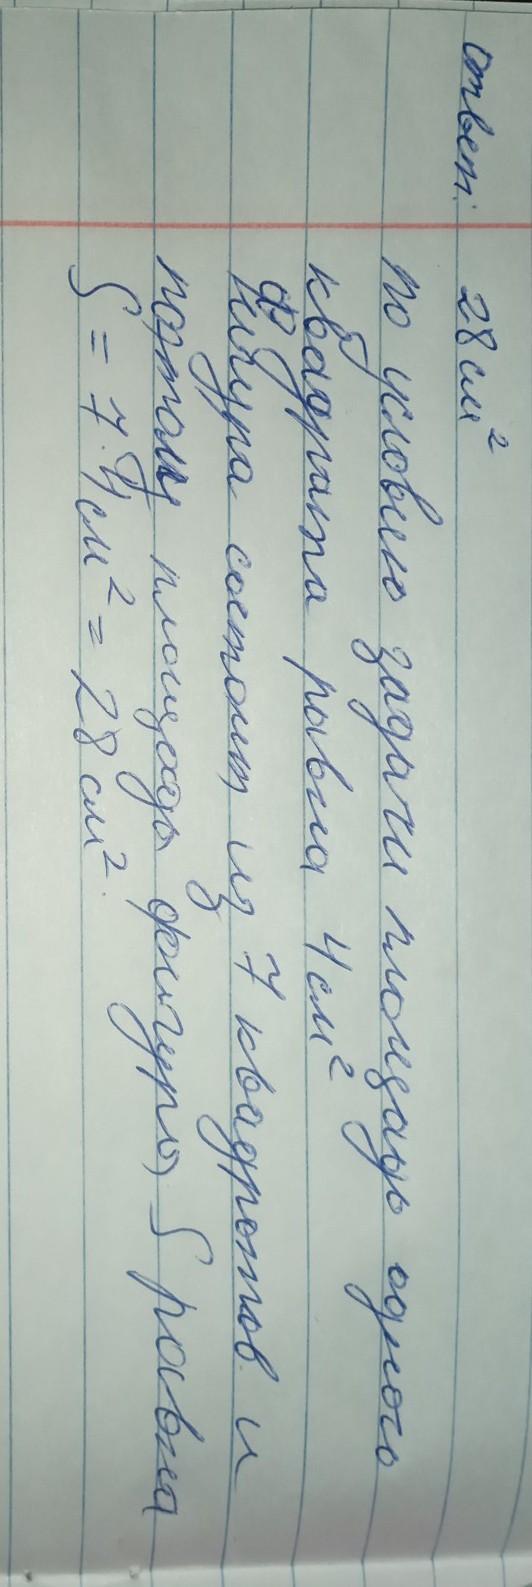 ответ: 28 см²
по условию задачи площадь одного
квадрата равна 4 см²
Фигура состоит из 7 квадратов и
поэтому площадь фигуры S равна
S = 7·4 см² = 28 см².